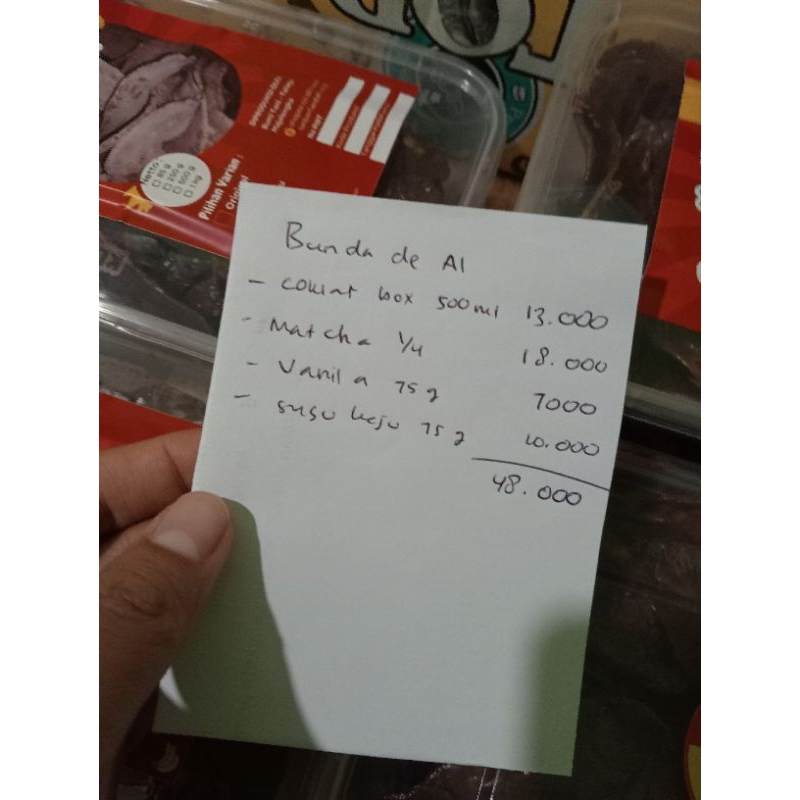 Netto :
85 g
250 g
500 g
1 kg
Pilihan Varian :
Original
Bunda de Al
- coklat box 500ml 13.000
- Matcha 1/4 18.000
- Vanila 75 g 7000
- susu keju 75 g 10.000
48.000